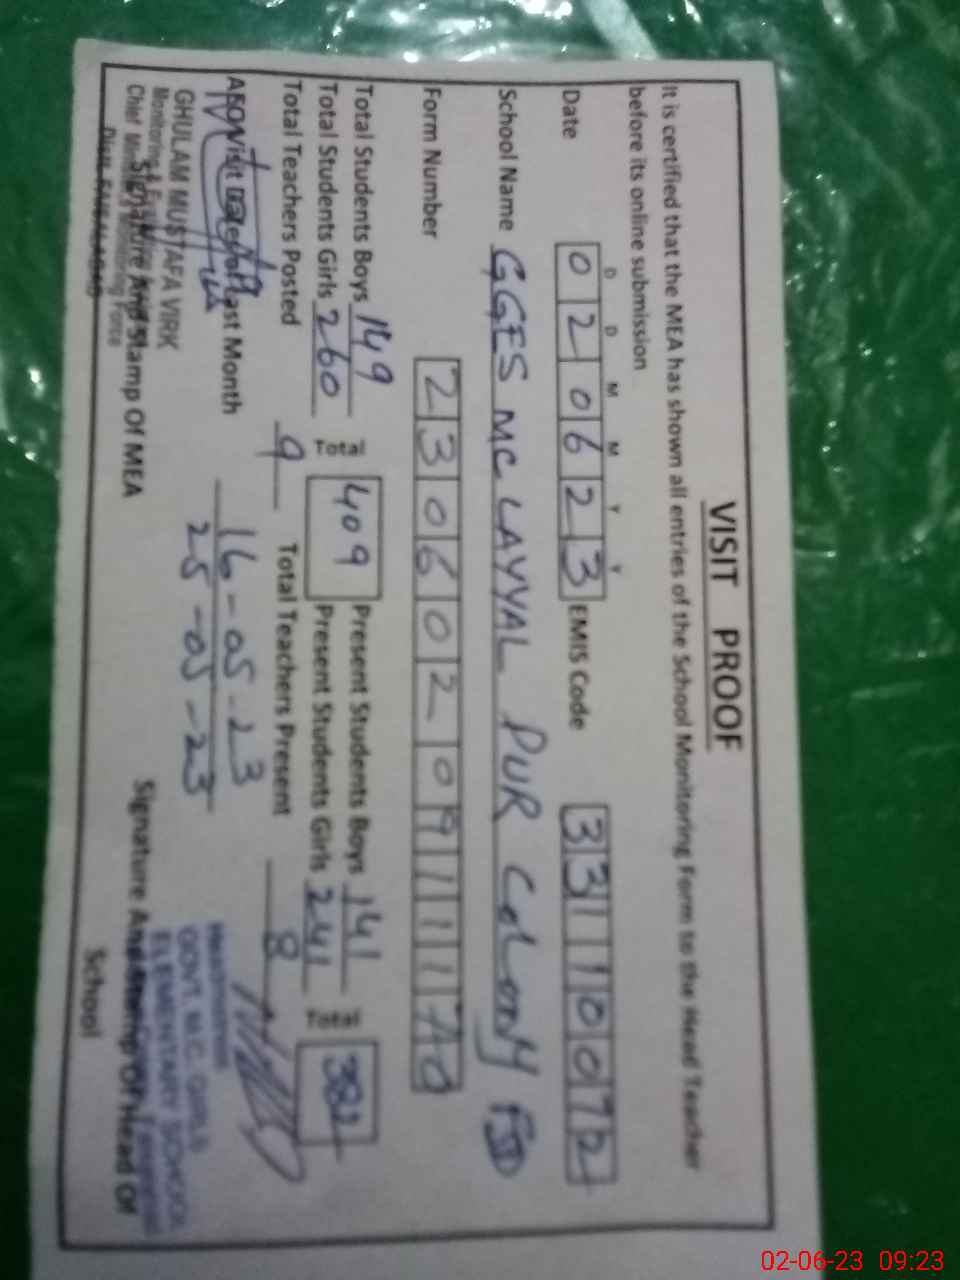 VISIT PROOF
It is certified that the MEA has shown all entries of the School Monitoring Form to the Head Teacher
before its online submission
D D M M Y Y
Date 020623 EMIS Code 33110072
School Name GGES MC LAYYAL PUR COLONY FSD
Form Number 2306020911117
Total Students Boys 149 Total 409 Present Students Boys 141 Total 382
Total Students Girls 260 Present Students Girls 241
Total Teachers Posted 9 Total Teachers Present 8
AEO Visit Date of Last Month 16-05-23
25-05-23
GHULAM MUSTAFA VIRK
Monitoring &
Chief Monitoring Force
Signature And Stamp Of MEA
GOVT. M.C. GIRLS
ELEMENTARY SCHOOL
Signature And Stamp Of Head Of
School
02-06-23 09:23